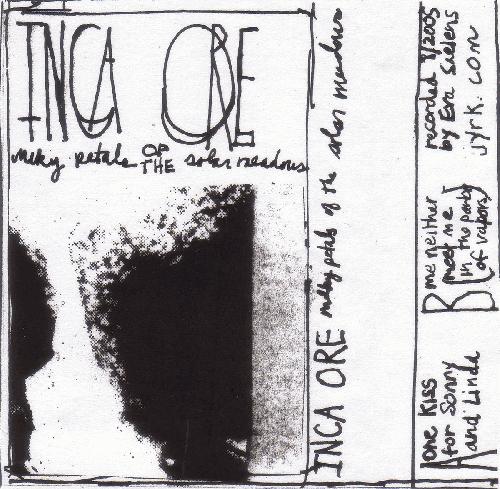 INCA ORE
milky petals OF THE solar meadows
INCA ORE milky petals of the solar meadows
A one kiss
for Sonny
and Linda
B me neither
(meet me
in the
of vapors)
recorded 8/2005
by Eva Saelens
jyrk.com